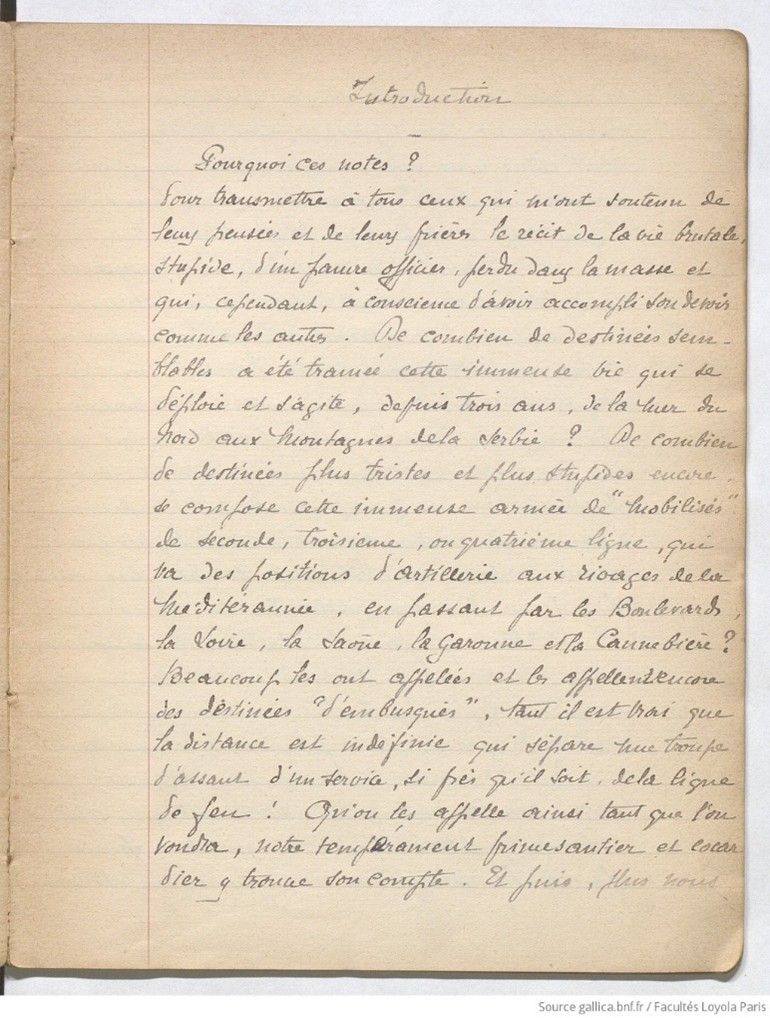 Introduction
Pourquoi ces notes ?
Pour transmettre à tous ceux qui m'ont soutenu de
leurs pensées et de leurs prières le récit de la vie brutale,
stupide, d'un pauvre officier, perdu dans la masse et
qui, cependant, à conscience d'avoir accompli son devoir
comme les autres. De combien de destinées sem-
blables a été tramée cette immense vie qui se
déploie et s'agite, depuis trois ans, de la mer du
Nord aux Montagnes de la Serbie ? De combien
de destinées plus tristes et plus stupides encore,
se compose cette immense armée de "Mobilisés"
de seconde, troisième, ou quatrième ligne, qui
va des positions d'artillerie aux rivages de la
Méditérannée, en passant par les Boulevards,
la Loire, la Saône, la Garonne et la Cannebière ?
Beaucoup les ont appelées et les appellent encore
des déstinées "d'embusqués", tant il est vrai que
la distance est indéfinie qui sépare une troupe
d'assaut d'un service, si près qu'il soit, de la ligne
de feu ! Qu'on les appelle ainsi tant que l'on
voudra, notre tempérament primesautier et cocar
dier y trouve son compte. Et puis, plus nous
Source gallica.bnf.fr / Facultés Loyola Paris